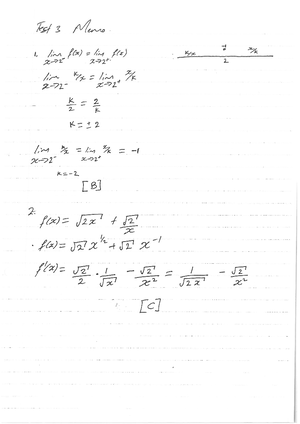 Test 3 Memo
1. lim x→2⁻ f(x) = lim x→2⁺ f(x)
k/x ? x/k
2
lim x→2⁻ k/x = lim x→2⁺ x/k
k/2 = 2/k
k = ± 2
lim x→2⁻ k/x = lim x→2⁺ x/k = -1
k=-2
[B]
2.
f(x) = √2x + √2/x
f(x) = √2 x^1/2 + √2 x^-1
f'(x) = √2/2 · 1/√x - √2/x² = 1/√2x - √2/x²
[C]